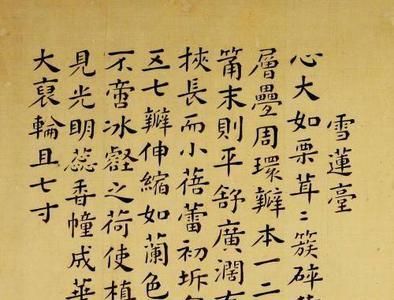 雪蓮臺
心大如栗茸〻簇碎
層疊周環瓣本一二
筩末則平舒廣濶
挾長而小蓓蕾初坼
五七瓣伸縮如蘭色
不啻冰壑之荷使植
見光明蕊香幢成華
大裒輪且七寸